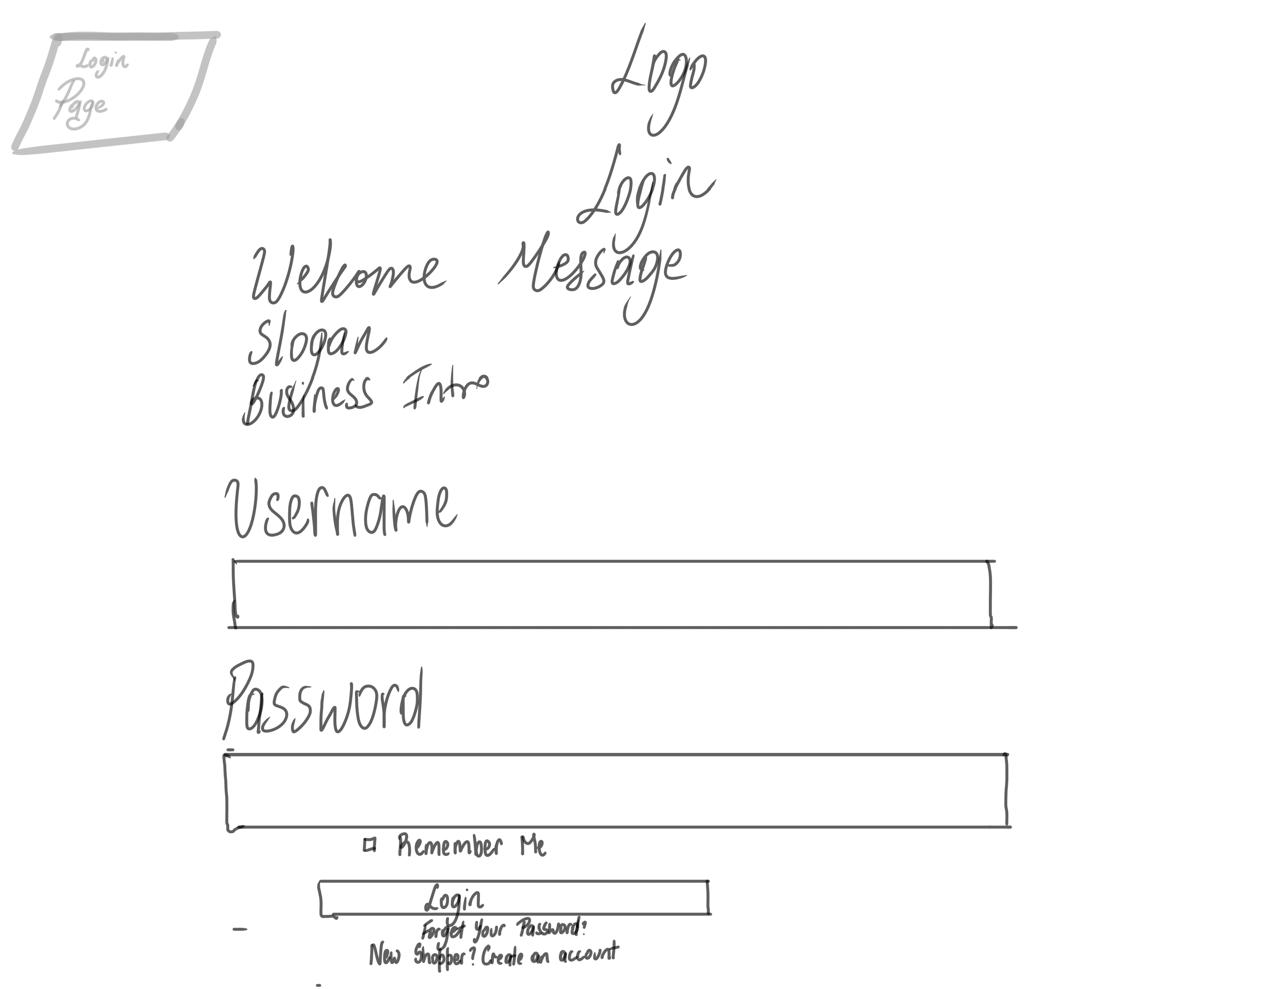 Login
Page
Logo
Login
Welcome Message
Slogan
Business Intro
Username
Password
Remember Me
Login
Forget Your Password?
New Shopper? Create an account